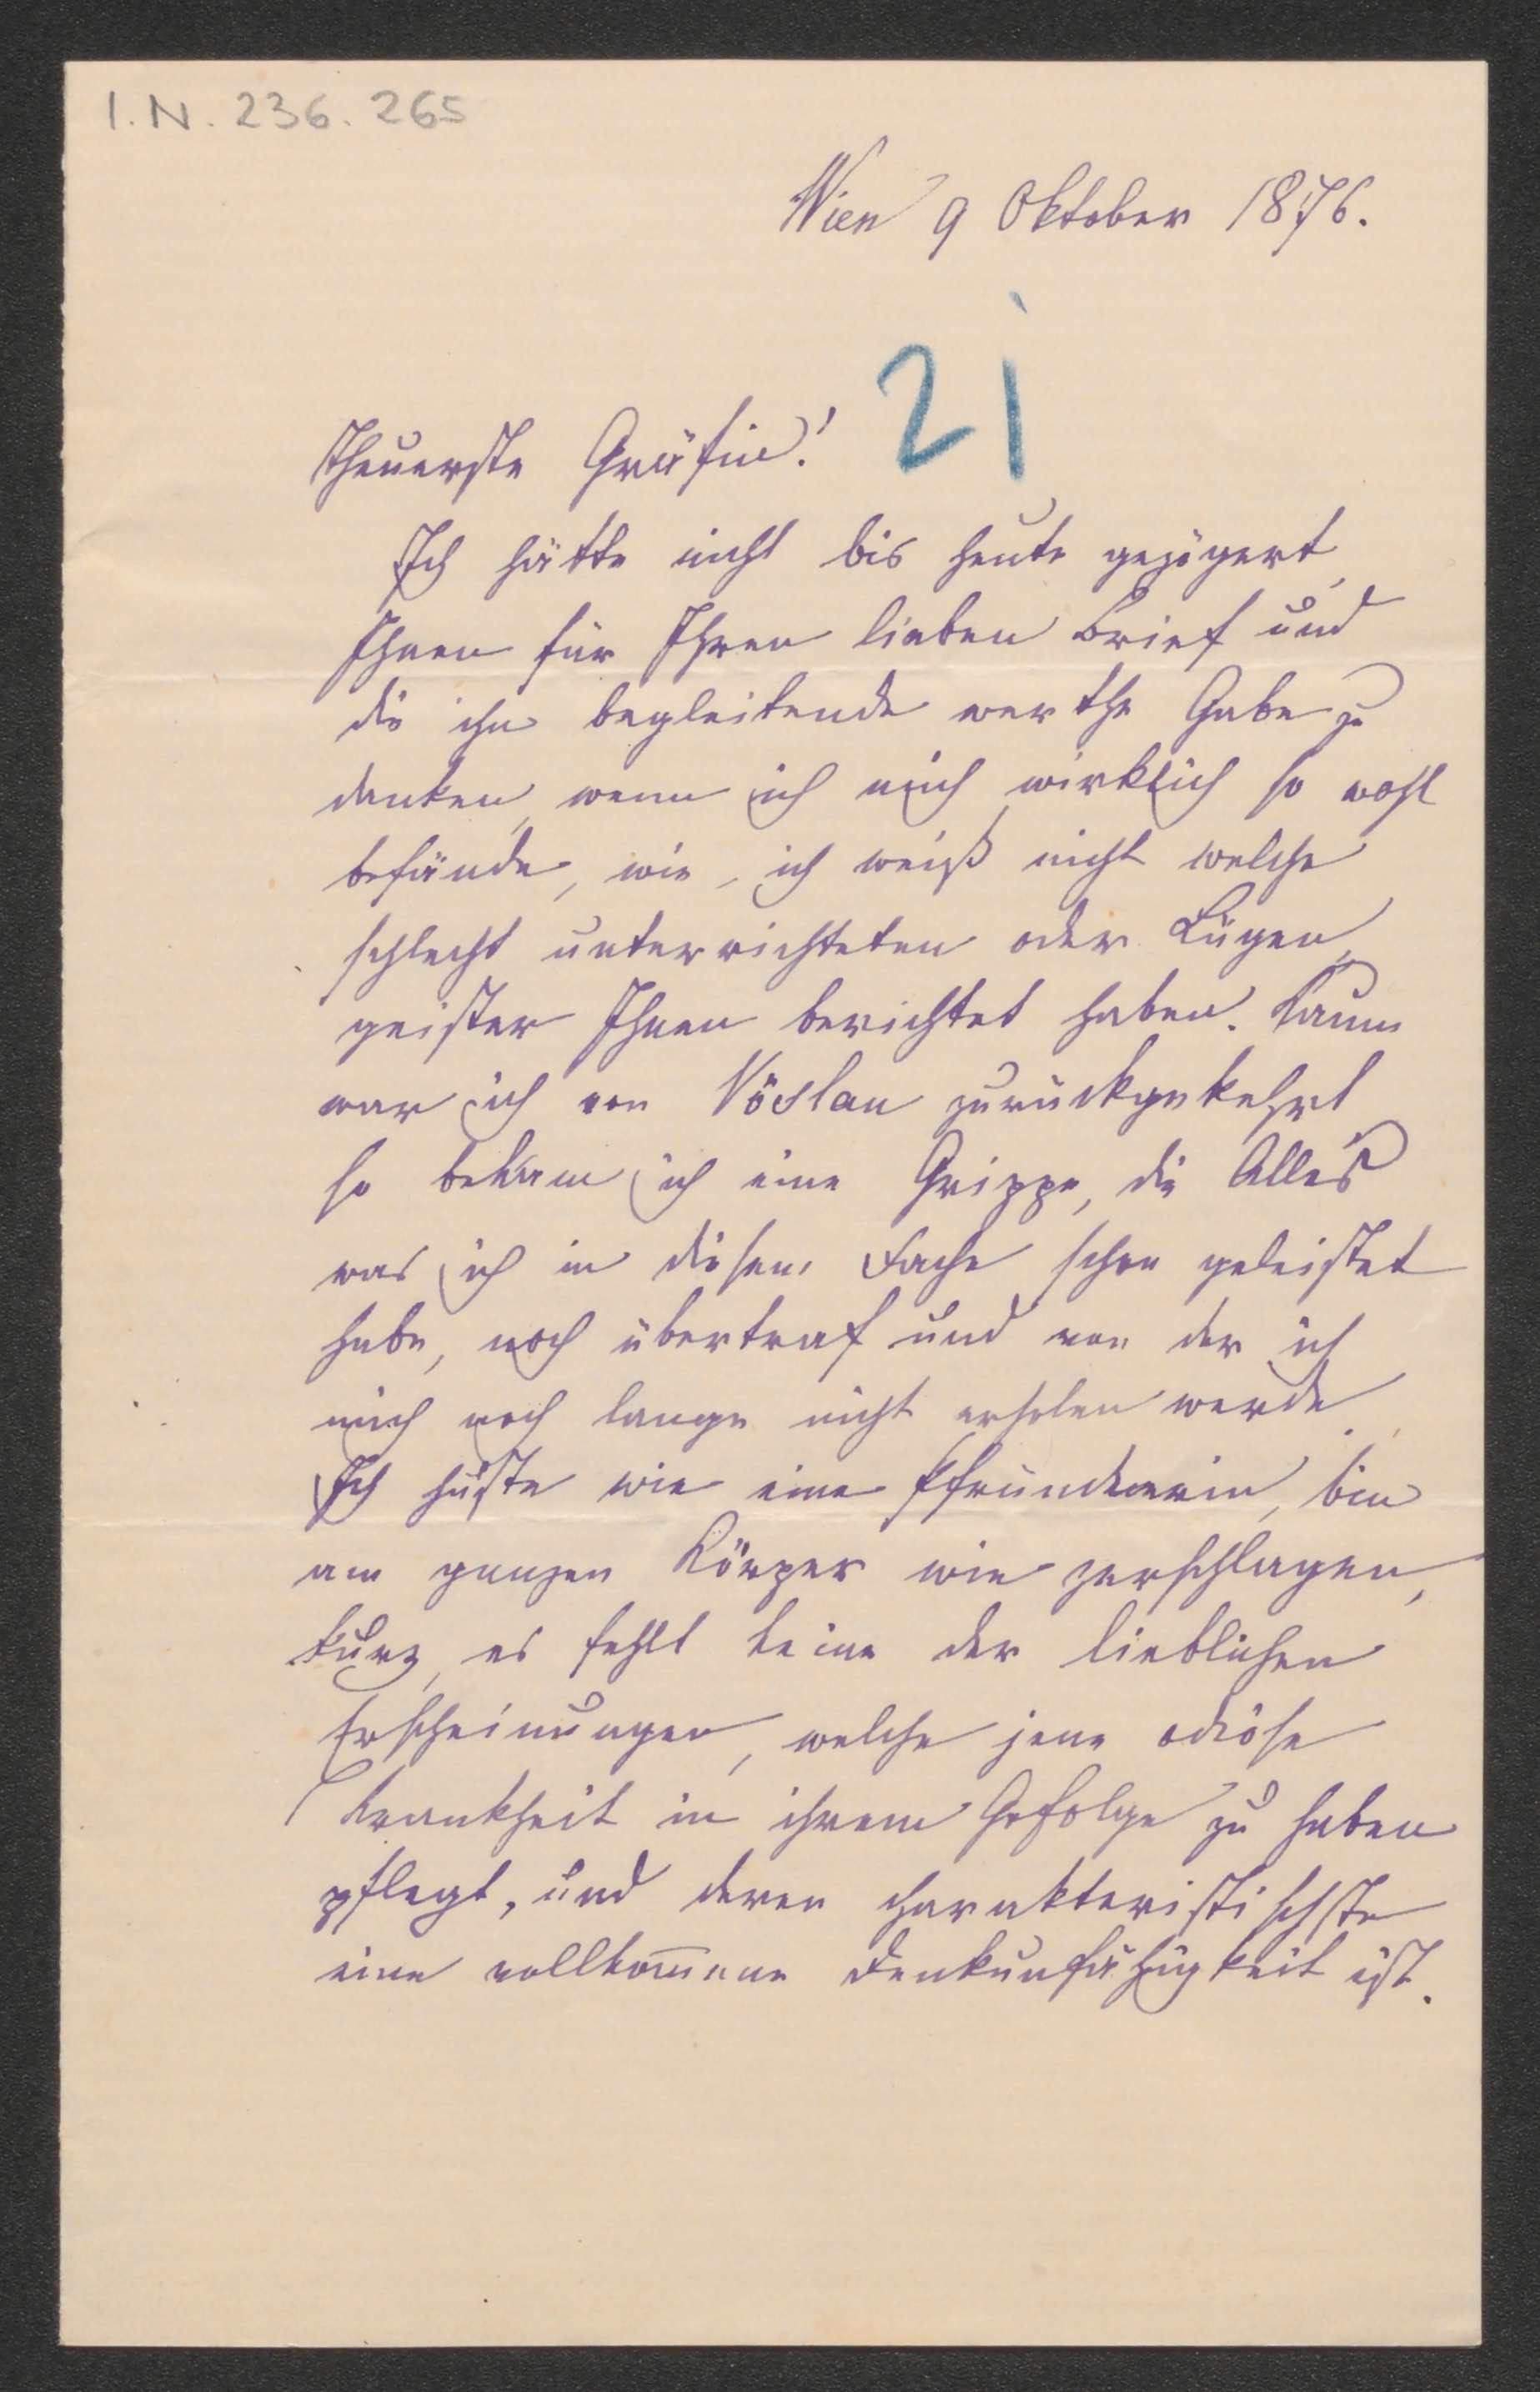 I.N. 236.265
Wien 9 Oktober 1876.
21
Theuerste Gräfin!
Ich hätte nicht bis heute gezögert,
Ihnen für Ihren lieben Brief und
die ihn begleitende werthe Gabe zu
danken, wenn ich mich wirklich so wohl
befände, wie, ich weiß nicht welche
schlecht unterrichteten oder Lügen
geister Ihnen berichtet haben. Kaum
war ich von Vöslau zurückgekehrt
so bekam ich eine Grippe, die Alles
was ich in diesem Fache schon geleistet
habe, noch übertraf und von der ich
mich noch lange nicht erholen werde.
Ich huste wie eine Pfründnerin, bin
am ganzen Körper wie zerschlagen,
kurz, es fehlt keine der lieblichen
Erscheinungen, welche jene odiöse
Krankheit in ihrem Gefolge zu haben
pflegt, und deren charakteristischste
eine vollkom̅ene Denkunfähigkeit ist.